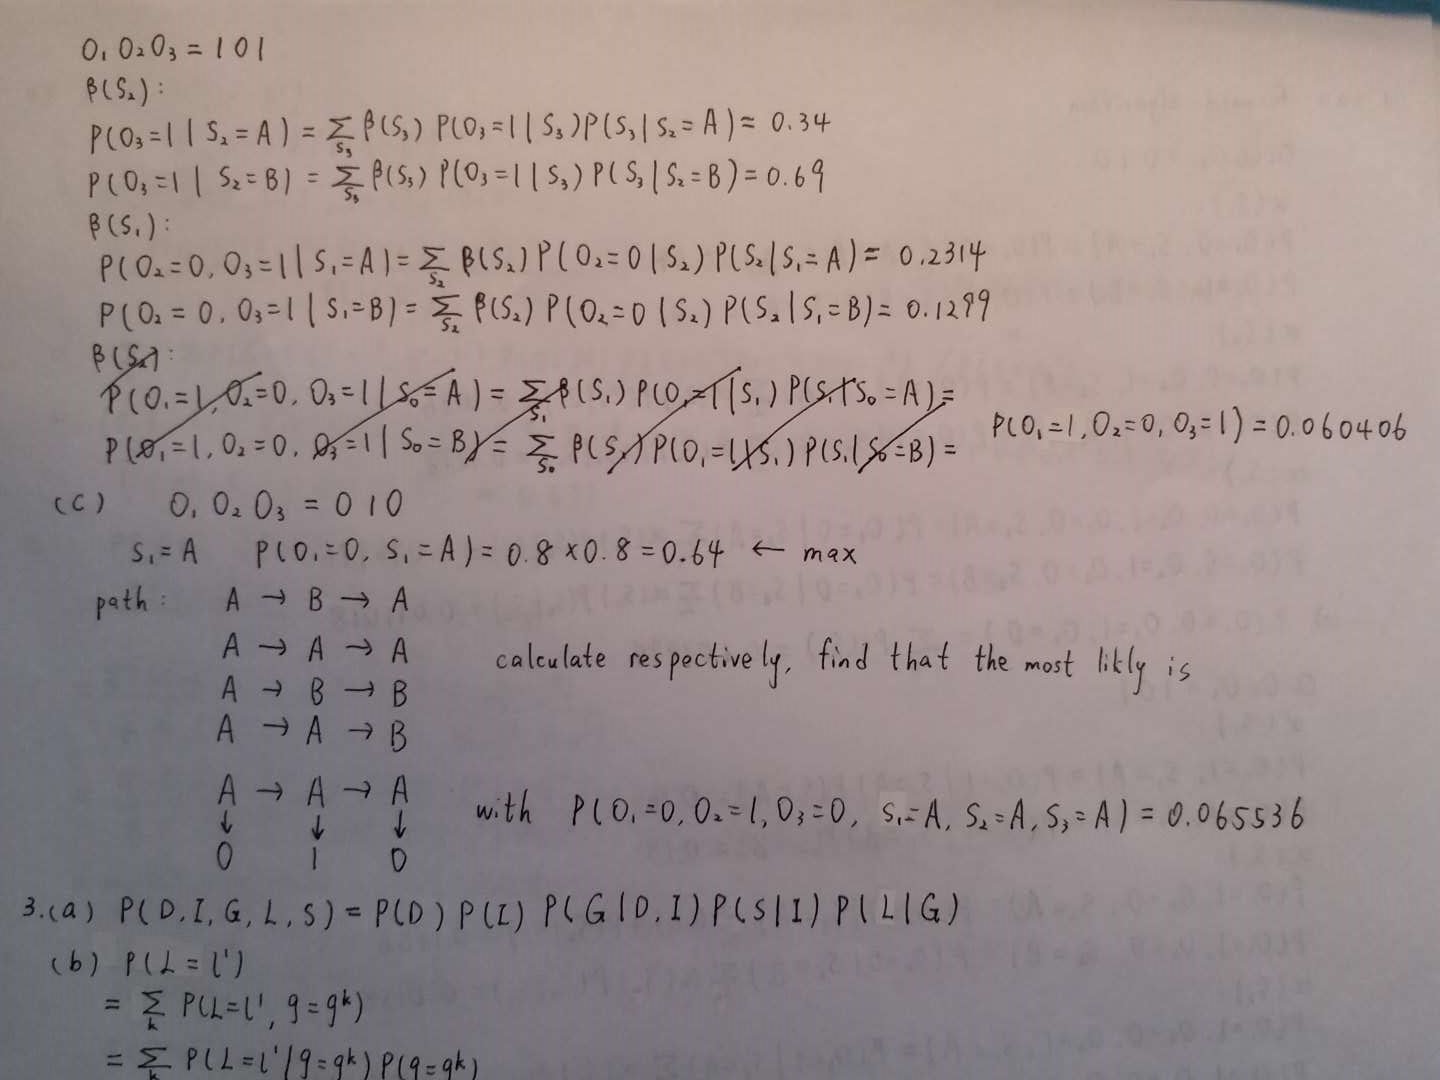 O₁ O₂ O₃ = 1 0 1
β(S₂):
P(O₃=1 | S₂=A) = Σ_{S₃} β(S₃) P(O₃=1 | S₃) P(S₃ | S₂=A) = 0.34
P(O₃=1 | S₂=B) = Σ_{S₃} β(S₃) P(O₃=1 | S₃) P(S₃ | S₂=B) = 0.69
β(S₁):
P(O₂=0, O₃=1 | S₁=A) = Σ_{S₂} β(S₂) P(O₂=0 | S₂) P(S₂ | S₁=A) = 0.2314
P(O₂=0, O₃=1 | S₁=B) = Σ_{S₂} β(S₂) P(O₂=0 | S₂) P(S₂ | S₁=B) = 0.1299
P(O₁=1, O₂=0, O₃=1 | S₀=A) = Σ_{S₁} β(S₁) P(O₁=1 | S₁) P(S₁ | S₀=A) =
P(O₁=1, O₂=0, O₃=1 | S₀=B) = Σ_{S₀} β(S₁) P(O₁=1 | S₁) P(S₁ | S₀=B) =
P(O₁=1, O₂=0, O₃=1) = 0.060406
(c) O₁ O₂ O₃ = 0 1 0
S₁=A P(O₁=0, S₁=A) = 0.8 × 0.8 = 0.64 ← max
path: A → B → A
A → A → A
calculate respectively, find that the most likly is
A → B → B
A → A → B
A → A → A
↓ ↓ ↓
0 1 0
with P(O₁=0, O₂=1, O₃=0, S₁=A, S₂=A, S₃=A) = 0.065536
3.(a) P(D, I, G, L, S) = P(D) P(I) P(G | D, I) P(S | I) P(L | G)
(b) P(L = l')
= Σ_k P(L=l', g=g^k)
= Σ_k P(L=l' | g=g^k) P(g=g^k)